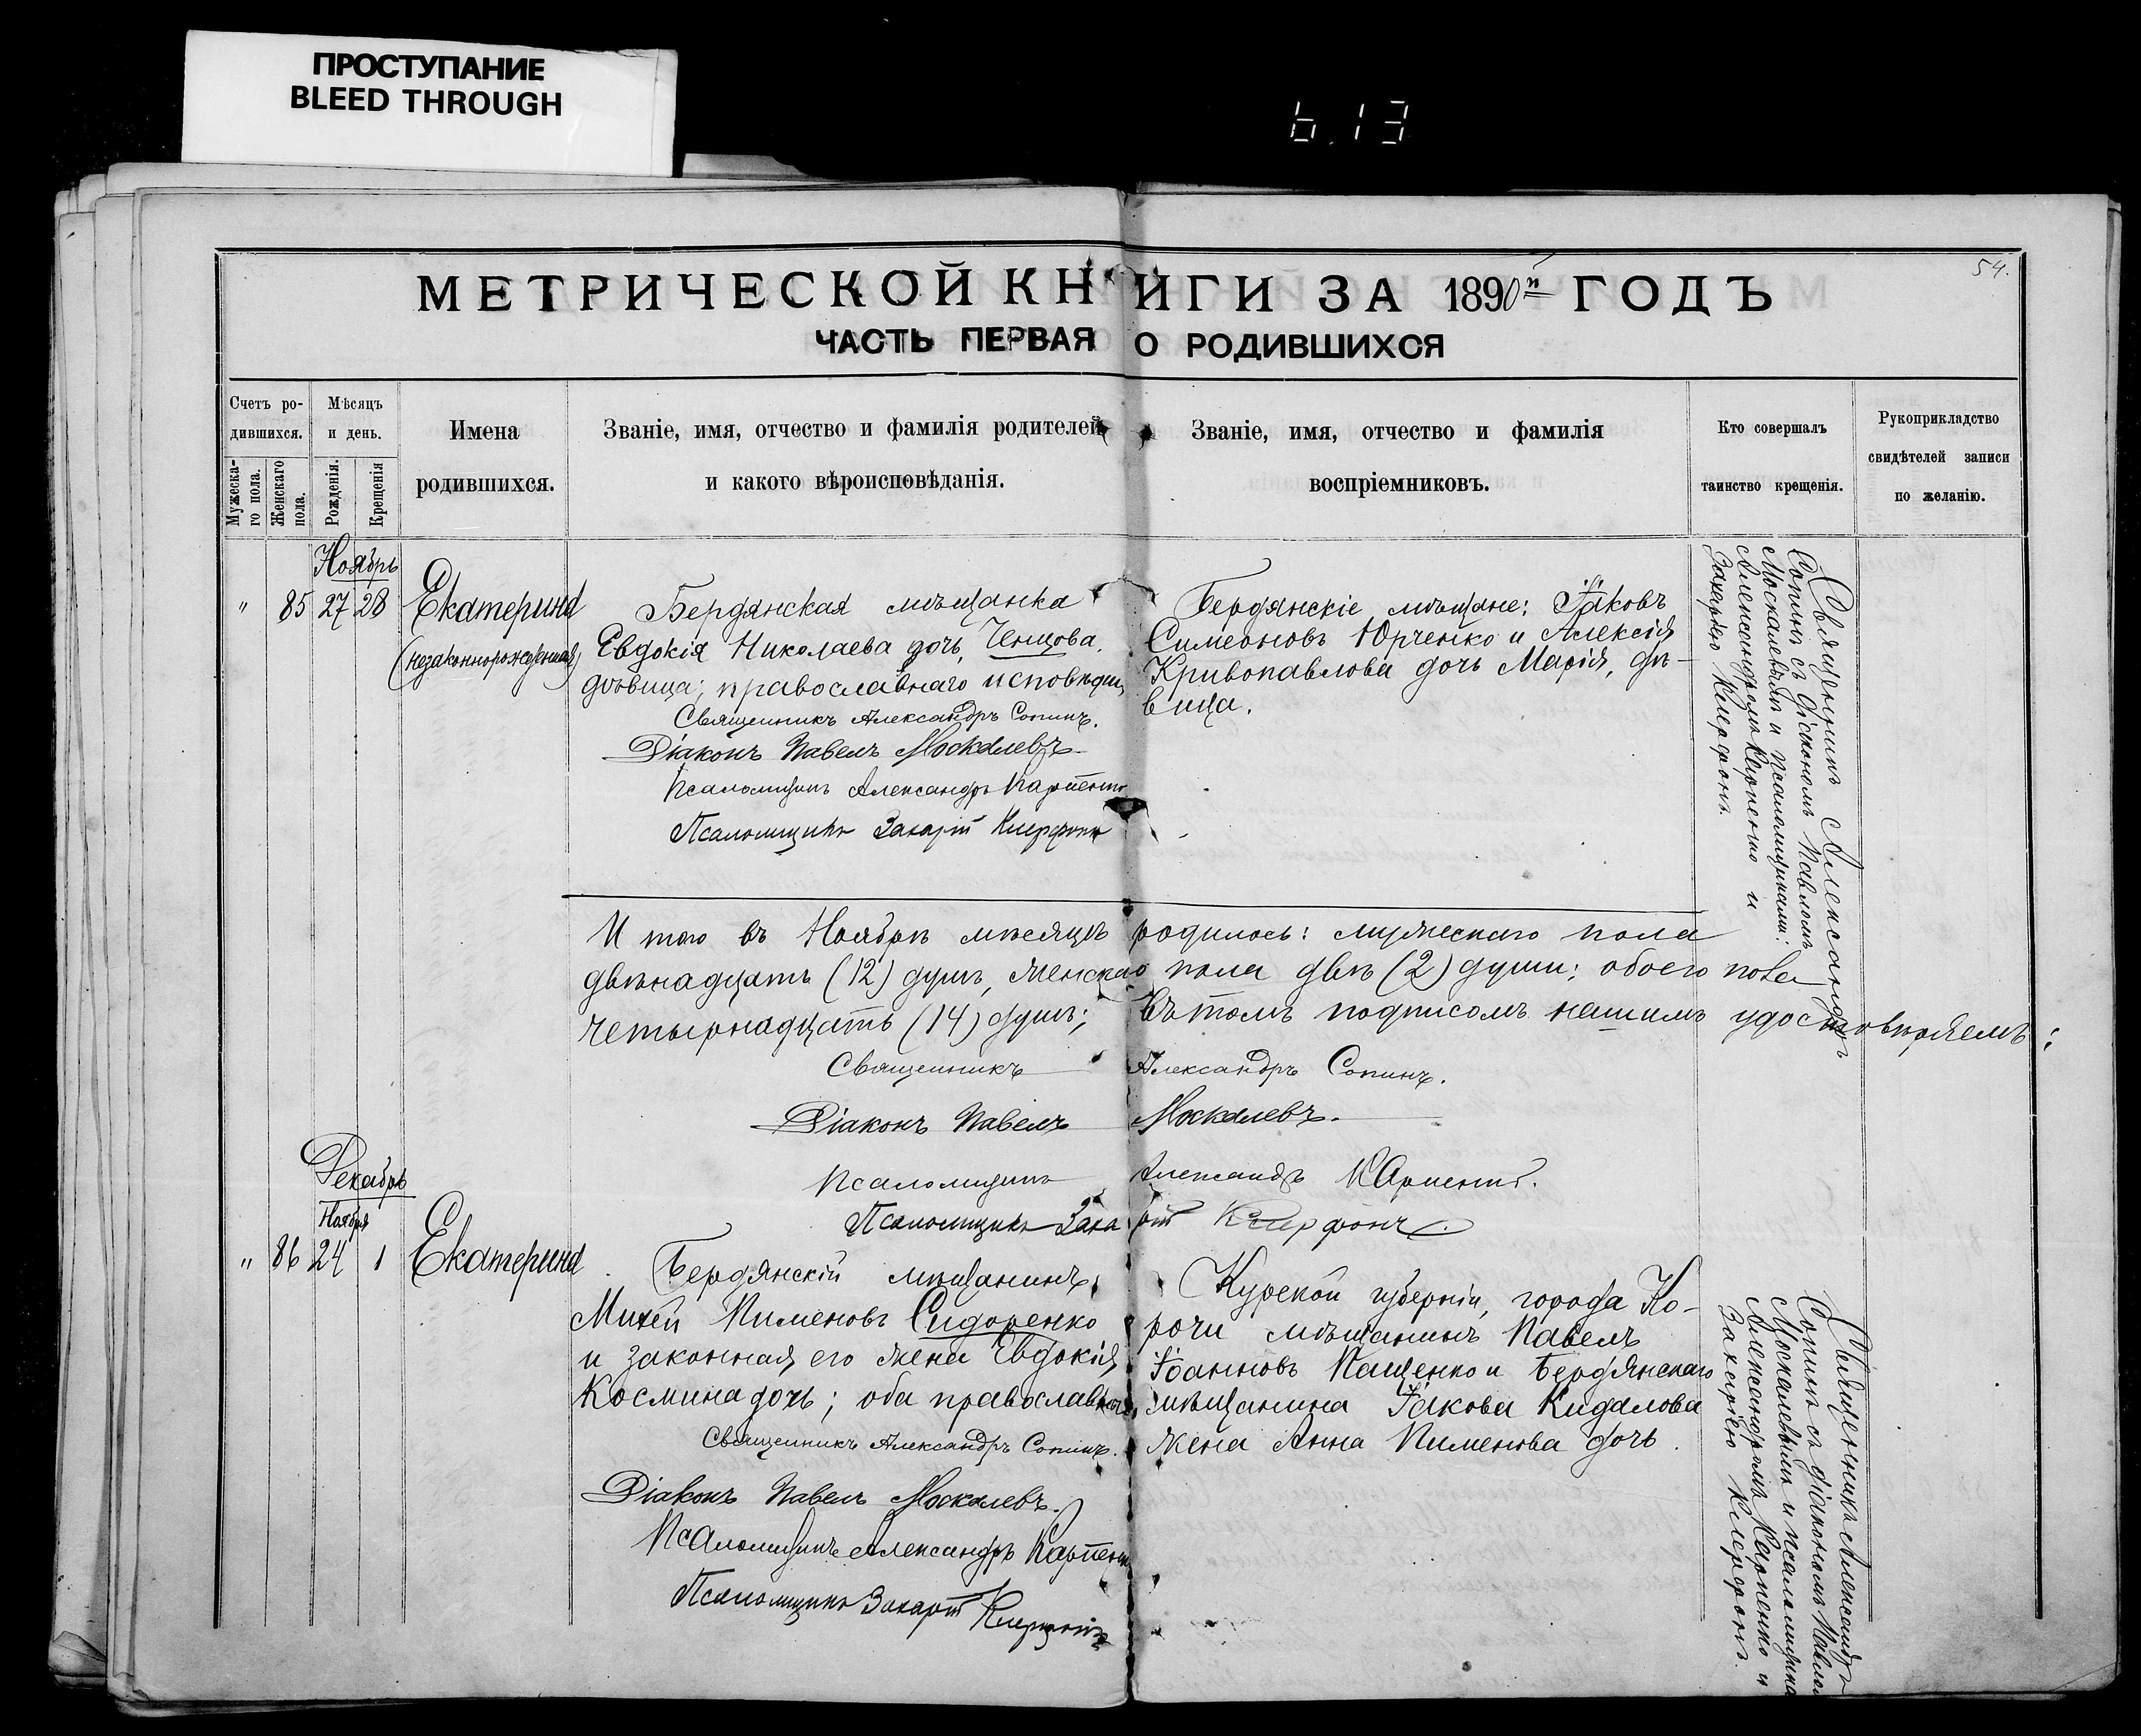 ПРОСТУПАНИЕ
BLEED THROUGH
6.13
54.
МЕТРИЧЕСКОЙ КНИГИ ЗА 1890й ГОДЪ
ЧАСТЬ ПЕРВАЯ О РОДИВШИХСЯ
Счетъ ро-
дившихся.
Мужеска-
го пола.
Женскаго
пола.
Мѣсяцъ
и день.
Рожденія.
Крещенія
Имена
родившихся.
Званіе, имя, отчество и фамилія родителей
и какого вѣроисповѣданія.
Званіе, имя, отчество и фамилія
воспріемниковъ.
Кто совершалъ
таинство крещенія.
Рукоприкладство
свидѣтелей записи
по желанію.
Ноябрь
" 85 27 28 Екатерина
(незаконнорожденная)
Бердянская мѣщанка
Евдокія Николаева дочь, Ченцова,
дѣвица; православнаго исповѣдан
Священникъ Александръ Сопинъ.
Діаконъ Павелъ Москалевъ
Псаломщикъ Александръ Карпенко
Псаломщикъ Захарій
Бердянскіе мѣщане: Іаковъ
Симеоновъ Юрченко и Алексія
Кривопавлова дочь Марія, дѣ-
вица.
Священникъ Александръ
Сопинъ съ діакономъ Павломъ
Москалевымъ и псаломщиками:
Александромъ Карпенко и
Захаріею
Итого въ Ноябрѣ мѣсяцѣ родилось: мужескаго пола
двѣнадцать (12) душъ, женскаго пола двѣ (2) души; обоего пола
четырнадцать (14) душъ; въ томъ подписомъ нашимъ удостовѣряемъ:
Священникъ Александръ Сопинъ.
Діаконъ Павелъ Москалевъ.
Псаломщикъ Александръ Карпенко.
Псаломщикъ Захарій
Декабрь
Ноября
" 86 24 1 Екатерина
Бердянскій мѣщанинъ
Михей Пименовъ Сидоренко
и законная его жена Евдокія
Космина дочь; оба православные
Священникъ Александръ Сопинъ.
Діаконъ Павелъ Москалевъ.
Псаломщикъ Александръ Карпенко
Псаломщикъ Захарій
Курской губерніи, города Ко-
рочи мѣщанинъ Павелъ
Іоанновъ Пащенко и Бердянскаго
мѣщанина Іакова Кидалова
жена Анна Пименова дочь.
Священникъ Александръ
Сопинъ съ діакономъ Павломъ
Москалевымъ и псаломщиками
Александромъ Карпенко и
Захаріею